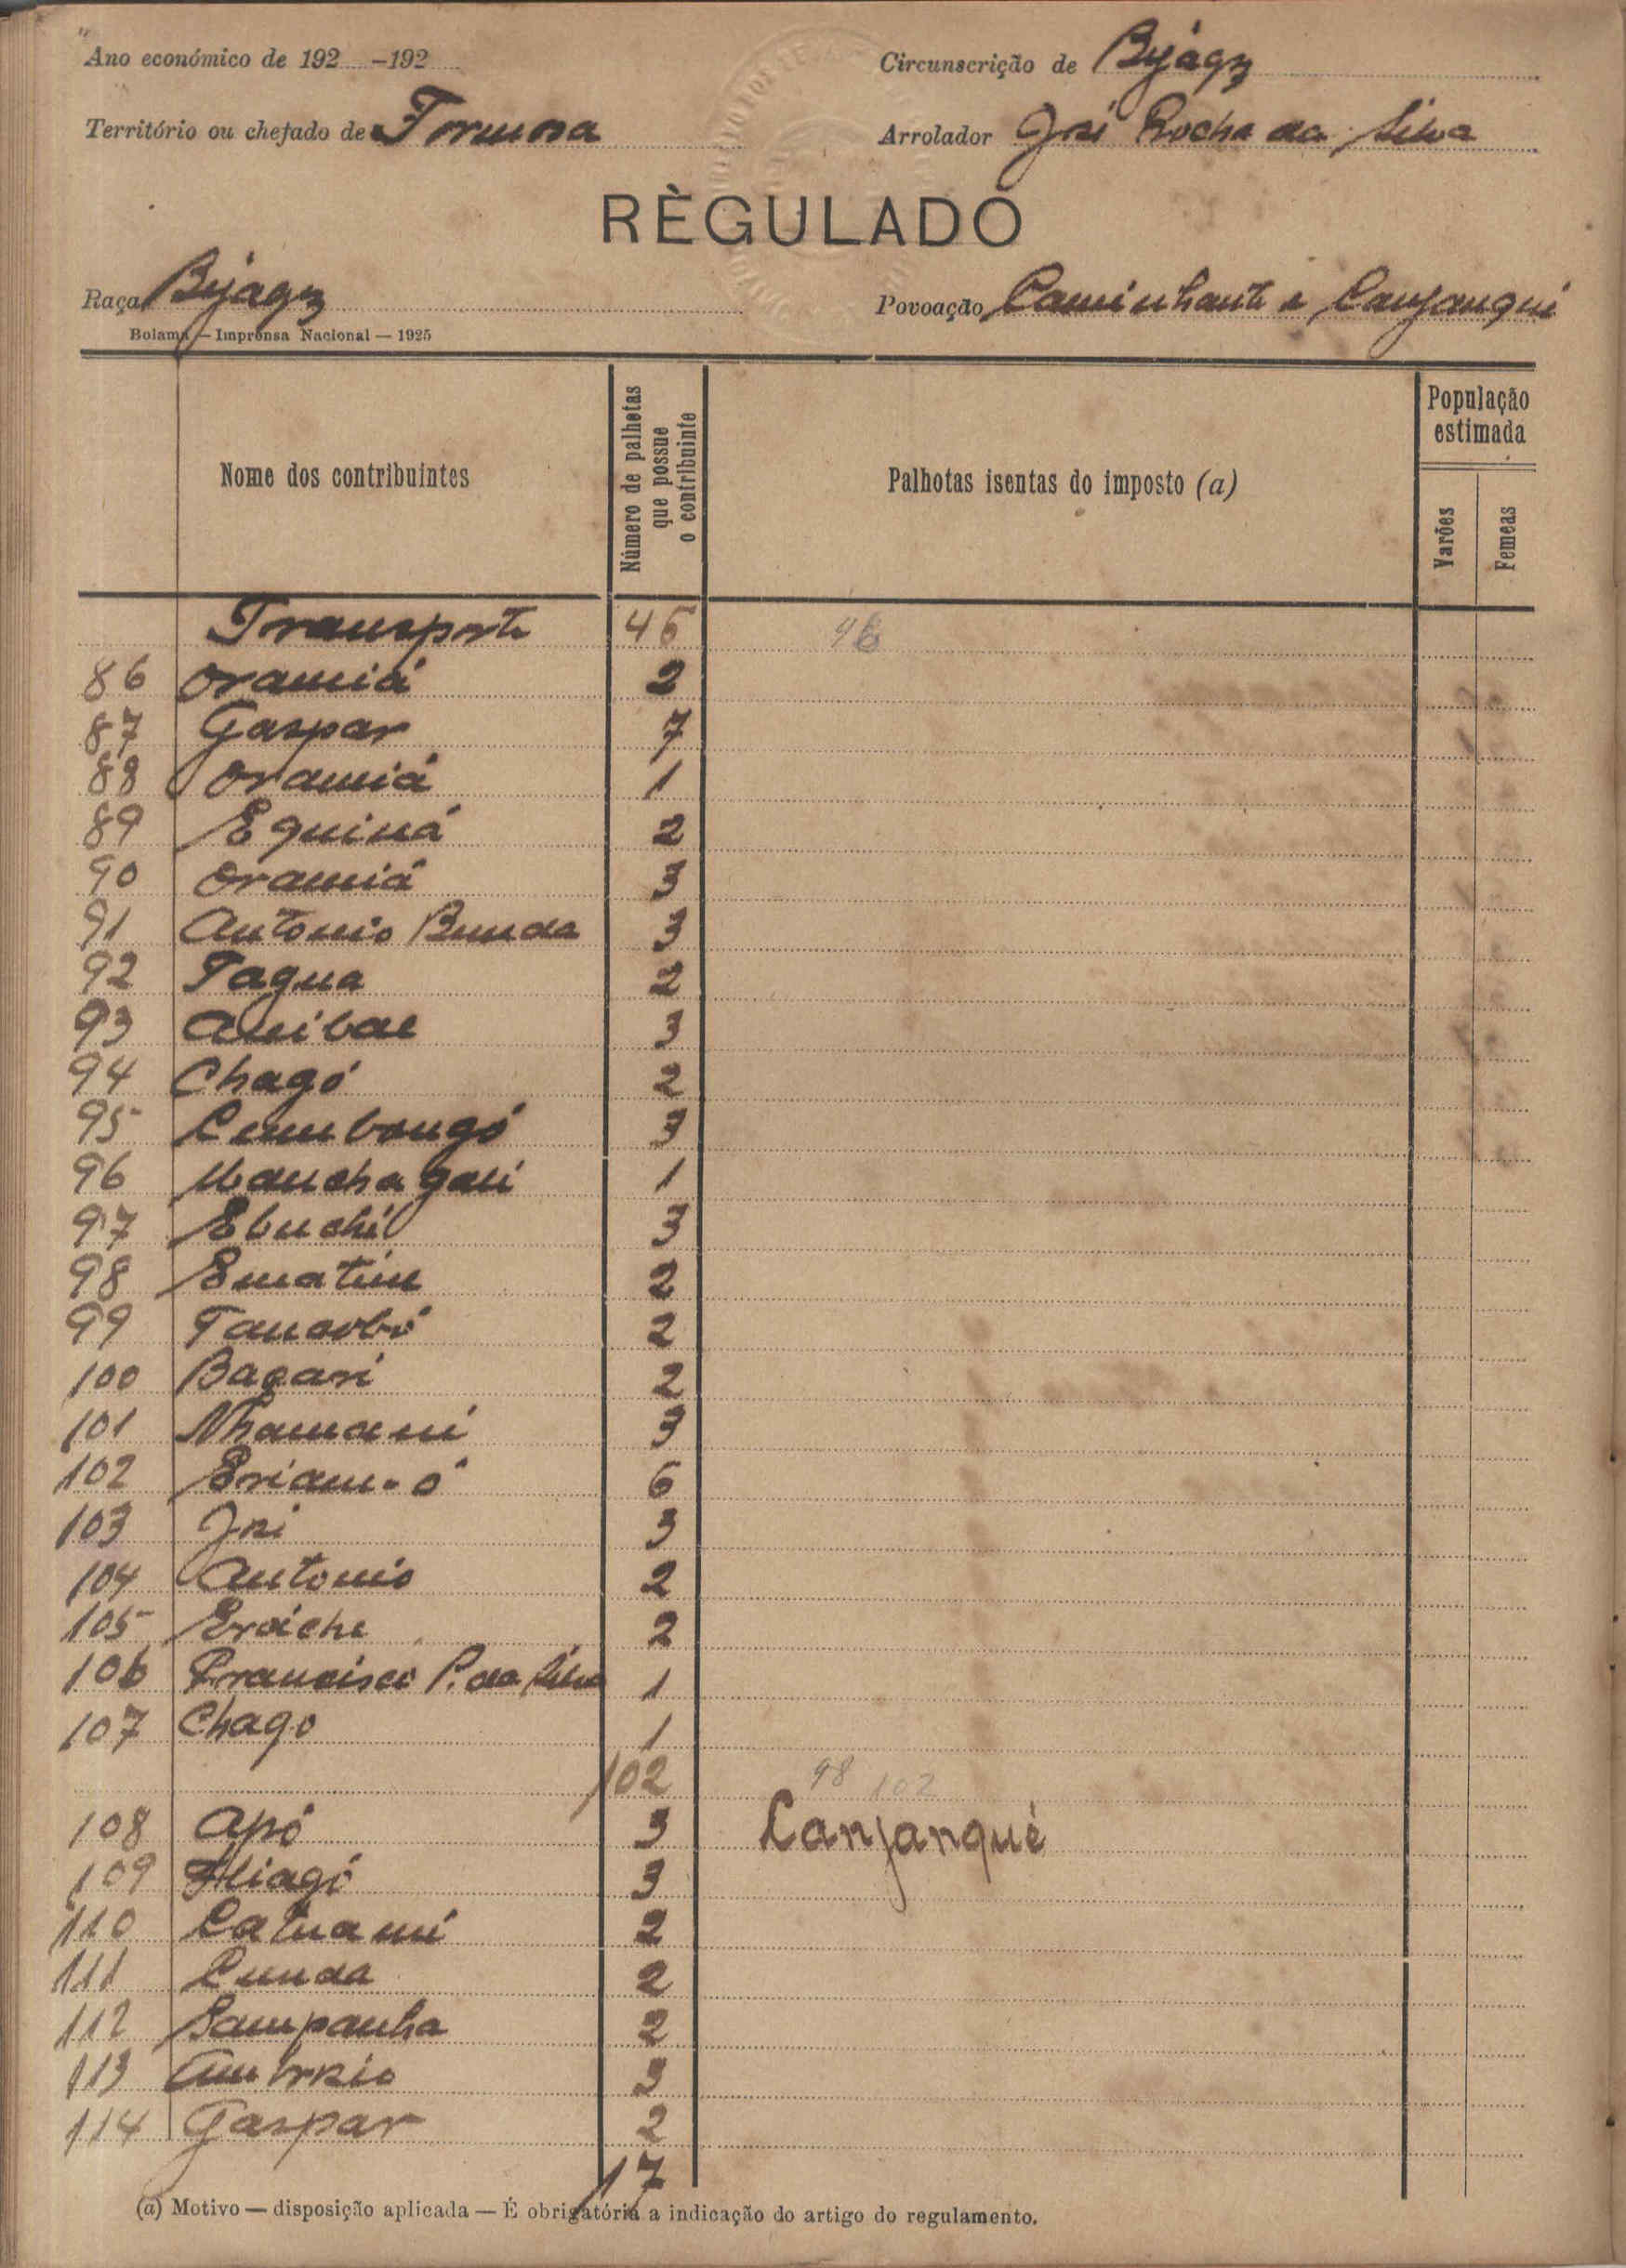 Ano económico de 192 -192
Circunscrição de Bijagoz
Território ou chefado de Formosa
Arrolador José Rocha da Silva
RÈGULADO
Raça Bijagoz
Povoação Caminhante e Canjanqué
Bolama — Imprensa Nacional — 1925
Nome dos contribuintes
Número de palhetas que possue o contribuinte
Palhotas isentas do imposto (a)
População estimada
Varões
Femeas
Transporte 46 46
86 Oramiá 2
87 Gaspar 7
88 Oramiá 1
89 Equiná 2
90 Oramiá 3
91 Antonio Bunda 3
92 Tagua 2
93 Anibal 3
94 Chagó 2
95 Cumbongó 3
96 Manchagali 1
97 Ebuchi 3
98 Ematim 2
99 2
100 Bacari 2
101 Nhamani 3
102 Eriam-ó 6
103 José 3
104 Antonio 2
105 Eroiche 2
106 Francisco P. da Silva 1
107 Chago 1
102 98 102
108 Apó 3 Canjanqué
109 3
110 Catuami 2
111 Cunda 2
112 Sampanha 2
113 Ambrosio 3
114 Gaspar 2
17
(a) Motivo — disposição aplicada — É obrigatória a indicação do artigo do regulamento.